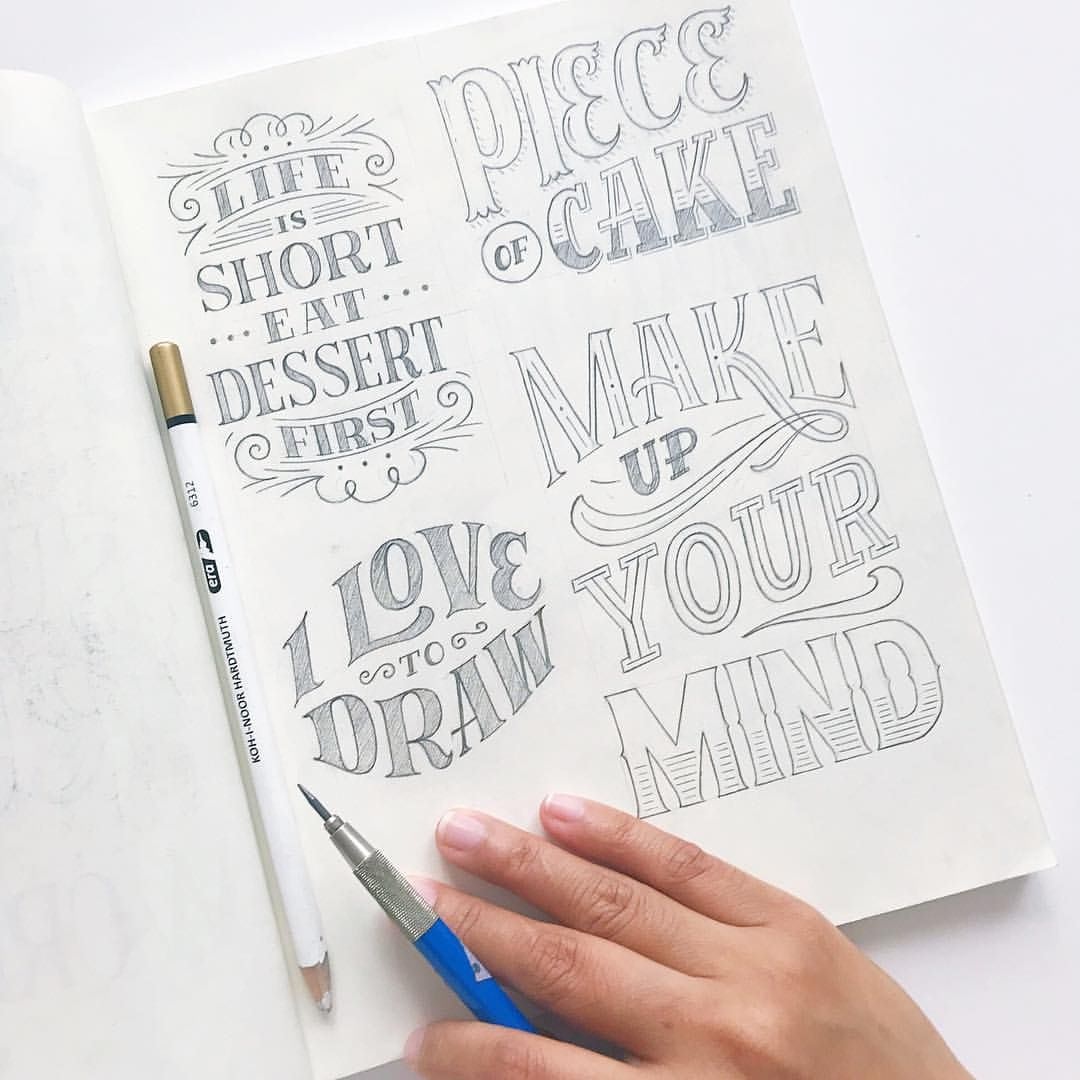 LIFE
IS
SHORT
EAT
DESSERT
FIRST
PIECE
OF CAKE
MAKE
UP
YOUR
MIND
I LOVE
TO
DRAW
6312
era
KOH-I-NOOR HARDTMUTH